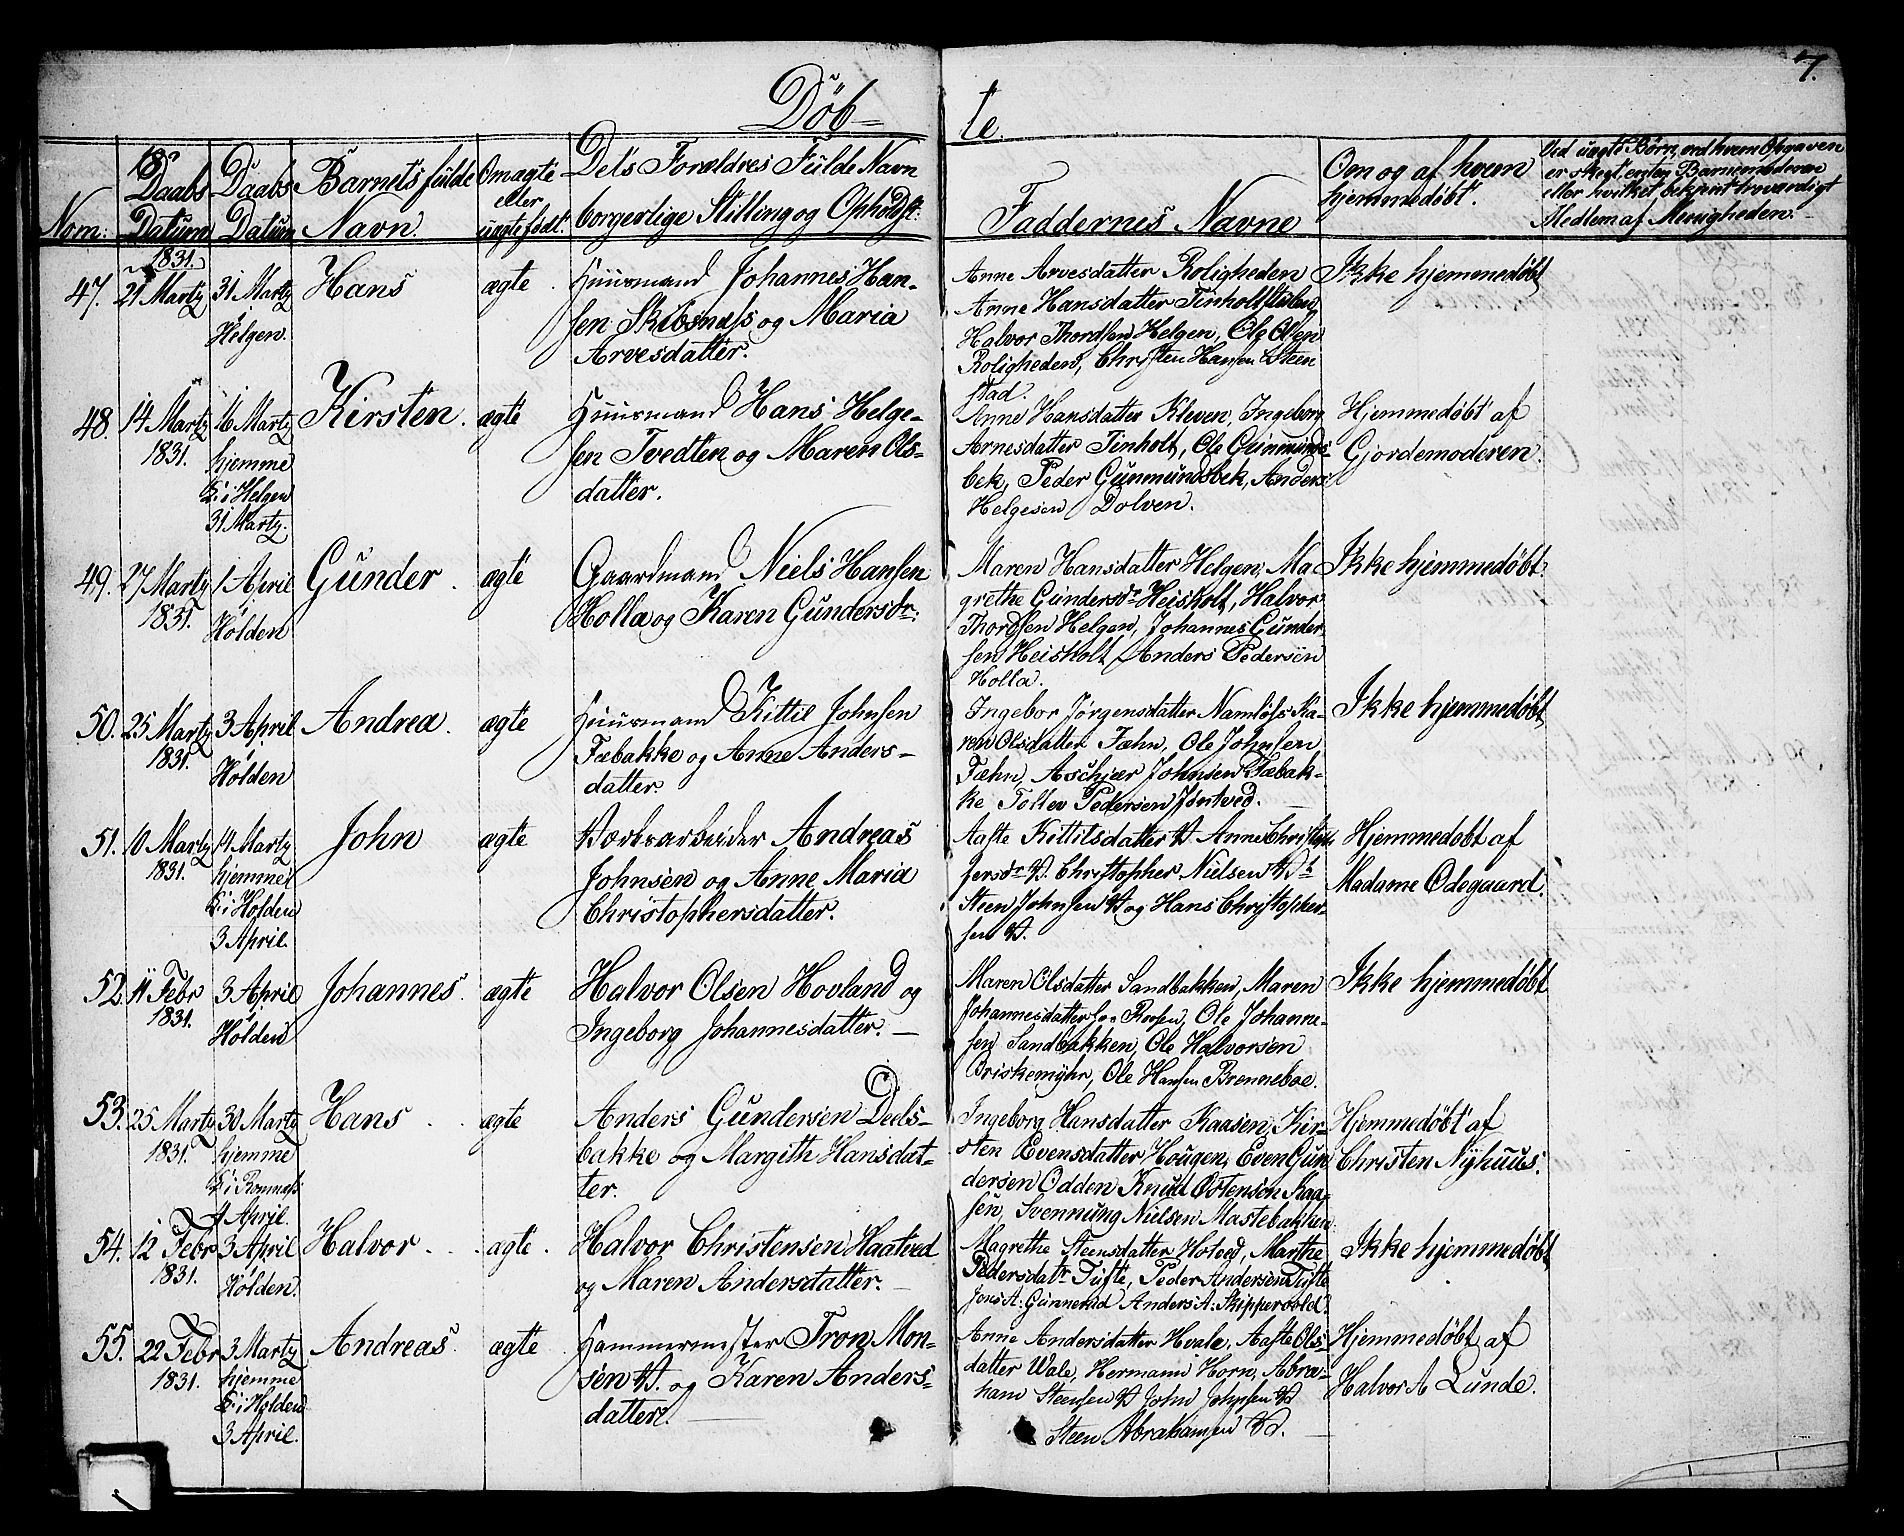 7.
Döb=
te.
Nom:
Daabs
Datum
Daabs
Datum
Barnets fulde
Navn.
Om ægte
eller
uægte født.
Dets Forældres Fulde Navn
borgerlige Stilling og Opholdst:
Faddernes Navne
Om og af hvem
hjemmedøbt.
Ved uægte Børn, ved hvem Opgaven
er skeet, enten Barnemoderen
eller hvilket bekjent troværdigt
Medlem af Menigheden.
47.
1831.
21 Marty
31 Marty
i
Helgen.
Hans
ægte.
Huusmand Johannes Han-
sen Skibsnass og Maria
Arvesdatter.
Anne Arvesdatter Roligheden
Anne Hansdatter Tinholt
Halvor Thordsen Helgen, Ole Olsen
Roligheden, Christen Hansen Steen
stad.
Ikke hjemmedøbt
48.
14 Marty
1831.
16 Marty
hjemme
i Helgen
31 Marty.
Kirsten.
ægte
Huusmand Hans Helge-
sen Tvedten og Maren Ols-
datter.
Anne Hansdatter Kleven, Ingeborg
Arnesdatter Tinholt, Ole Gunmunds-
bek, Peder Gunmundsbek, Anders
Helgesen Dolven.
Hjemmedøbt af
Gjordemoderen.
49.
27 Marty
1831.
1 April
i
Holden
Gunder.
ægte
Gaardmand Niels Hansen
Holla og Karen Gundersdr:
Maren Hansdatter Helgen, Ma-
grethe Gundersdr Heisholt, Halvor
Thordsen Helgen, Johannes Gunder
sen Heisholt Anders Pedersen
Holla.
Ikke hjemmedøbt.
50.
25 Marty
1831.
3 April
i
Holden
Andrea.
ægte
Huusmand Kittil Johnsen
Fæbakke og Anne Anders-
datter.
Ingebor Jörgensdatter Namløss Ka-
ren Olsdatter Fæhn, Ole Johnsen
Fæhn, Aschjær Johnsen Fæbak-
ke Tollev Pedersen Jøntved.
Ikke hjemmedøbt
51.
10 Marty
1831.
14 Marty
hjemme
i Holden
3 April.
John
ægte
Værksarbeider Andreas
Johnsen og Anne Maria
Christophersdatter.
Aaste Kittilsdatter V. Anne Christop
fersdr V. Christopher Nielsen V.
Steen Johnsen V og Hans Christopher-
sen V.
Hjemmedøbt af
Madame Ødegaard.
52.
11 Febr
1831.
3 April
i
Holden
Johannes.
ægte
Halvor Olsen Hovland og
Ingeborg Johannesdatter.
Maren Olsdatter Sandbakken, Maren
Johannesdatter Roesen, Ole Johanne-
sen Sandbakken, Ole Halvorsen
Briskemyhr, Ole Hansen Brenneboe.
Ikke hjemmedøbt
53.
25 Marty
1831.
30 Marty
hjemme
i Romnæs
4 April.
Hans
ægte
Anders Gundersen Deels-
bakke og Margith Hansdat-
ter.
Ingeborg Hansdatter Kaasen, Kir-
sten Evensdatter Hougen, Even Gun
dersen Odden Knud Østenson Kaa-
sen, Svennung Nielsen Mastebakken.
Hjemmedøbt af
Christen Nyhuus.
54.
12 Febr
1831.
3 April
i
Holden.
Halvor
ægte.
Halvor Christensen Haatved
og Maren Andersdatter.
Magrethe Steensdatter Hotved, Marthe
Pedersdatr Tufte, Peder Andersen Tufte
Jens A: Gunnerud Anders A: Skippervold.
Ikke hjemmedøbt
55.
22 Febr
1831.
3 Marty
hjemme
i Holden
3 April.
Andreas.
ægte
Hammermester Tron Mon-
sen V. og Karen Anders-
datter.
Anne Andersdatter Hvale, Aaste Ols-
datter Wale, Hermann Horn, Abra-
ham Steensen V John Johnsen V
Steen Abrahamsen V.
Hjemmedøbt af
Halvor A Lunde.